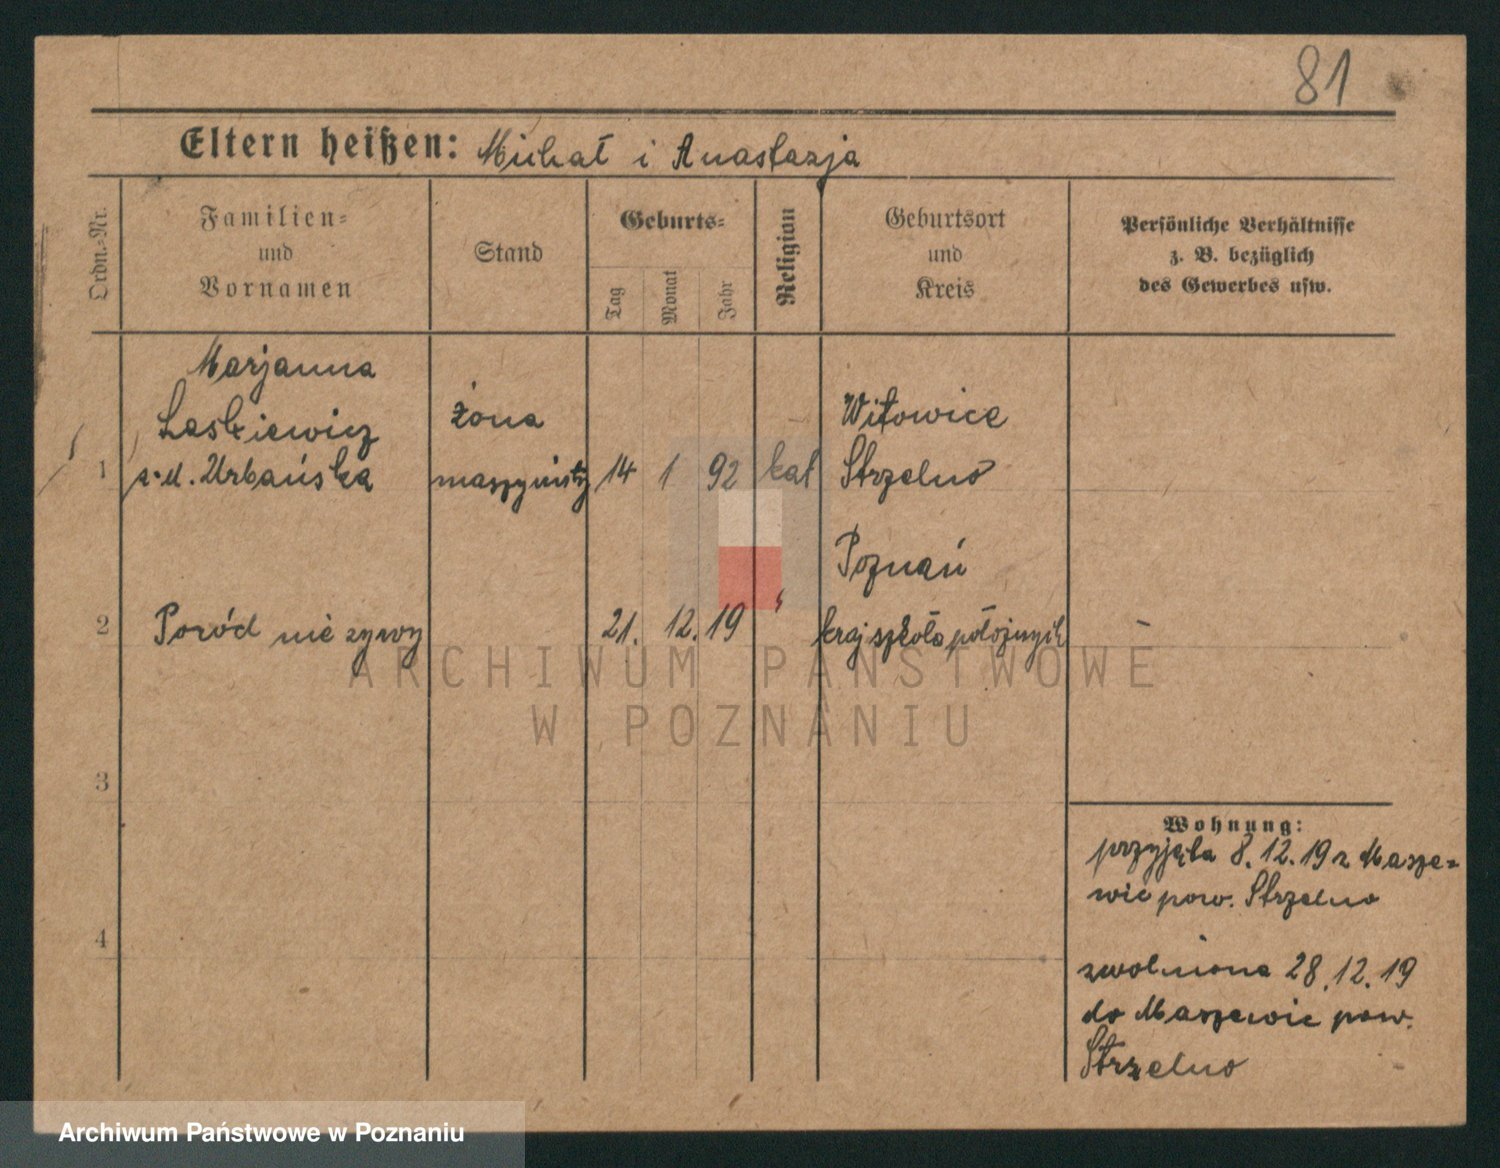 81
Eltern heißen: Michał i Anastazja
Ordn.-Nr.
Familien-
und
Vornamen
Stand
Geburts-
Tag
Monat
Jahr
Religion
Geburtsort
und
Kreis
Persönliche Verhältnisse
z. B. bezüglich
des Gewerbes usw.
Marjanna
Laskiewicz
1 z d. Urbańska
żona
maszynisty
14 1 92 kat
Witowice
Strzelno
2 Poród nie żywy
21. 12. 19
Poznań
kraj szkoła położnych
3
4
Wohnung:
przyjęta 8.12.19 z Masze=
wic pow. Strzelno
zwolniona 28.12.19
do Maszewic pow.
Strzelno
ARCHIWUM PAŃSTWOWE
W POZNANIU
Archiwum Państwowe w Poznaniu